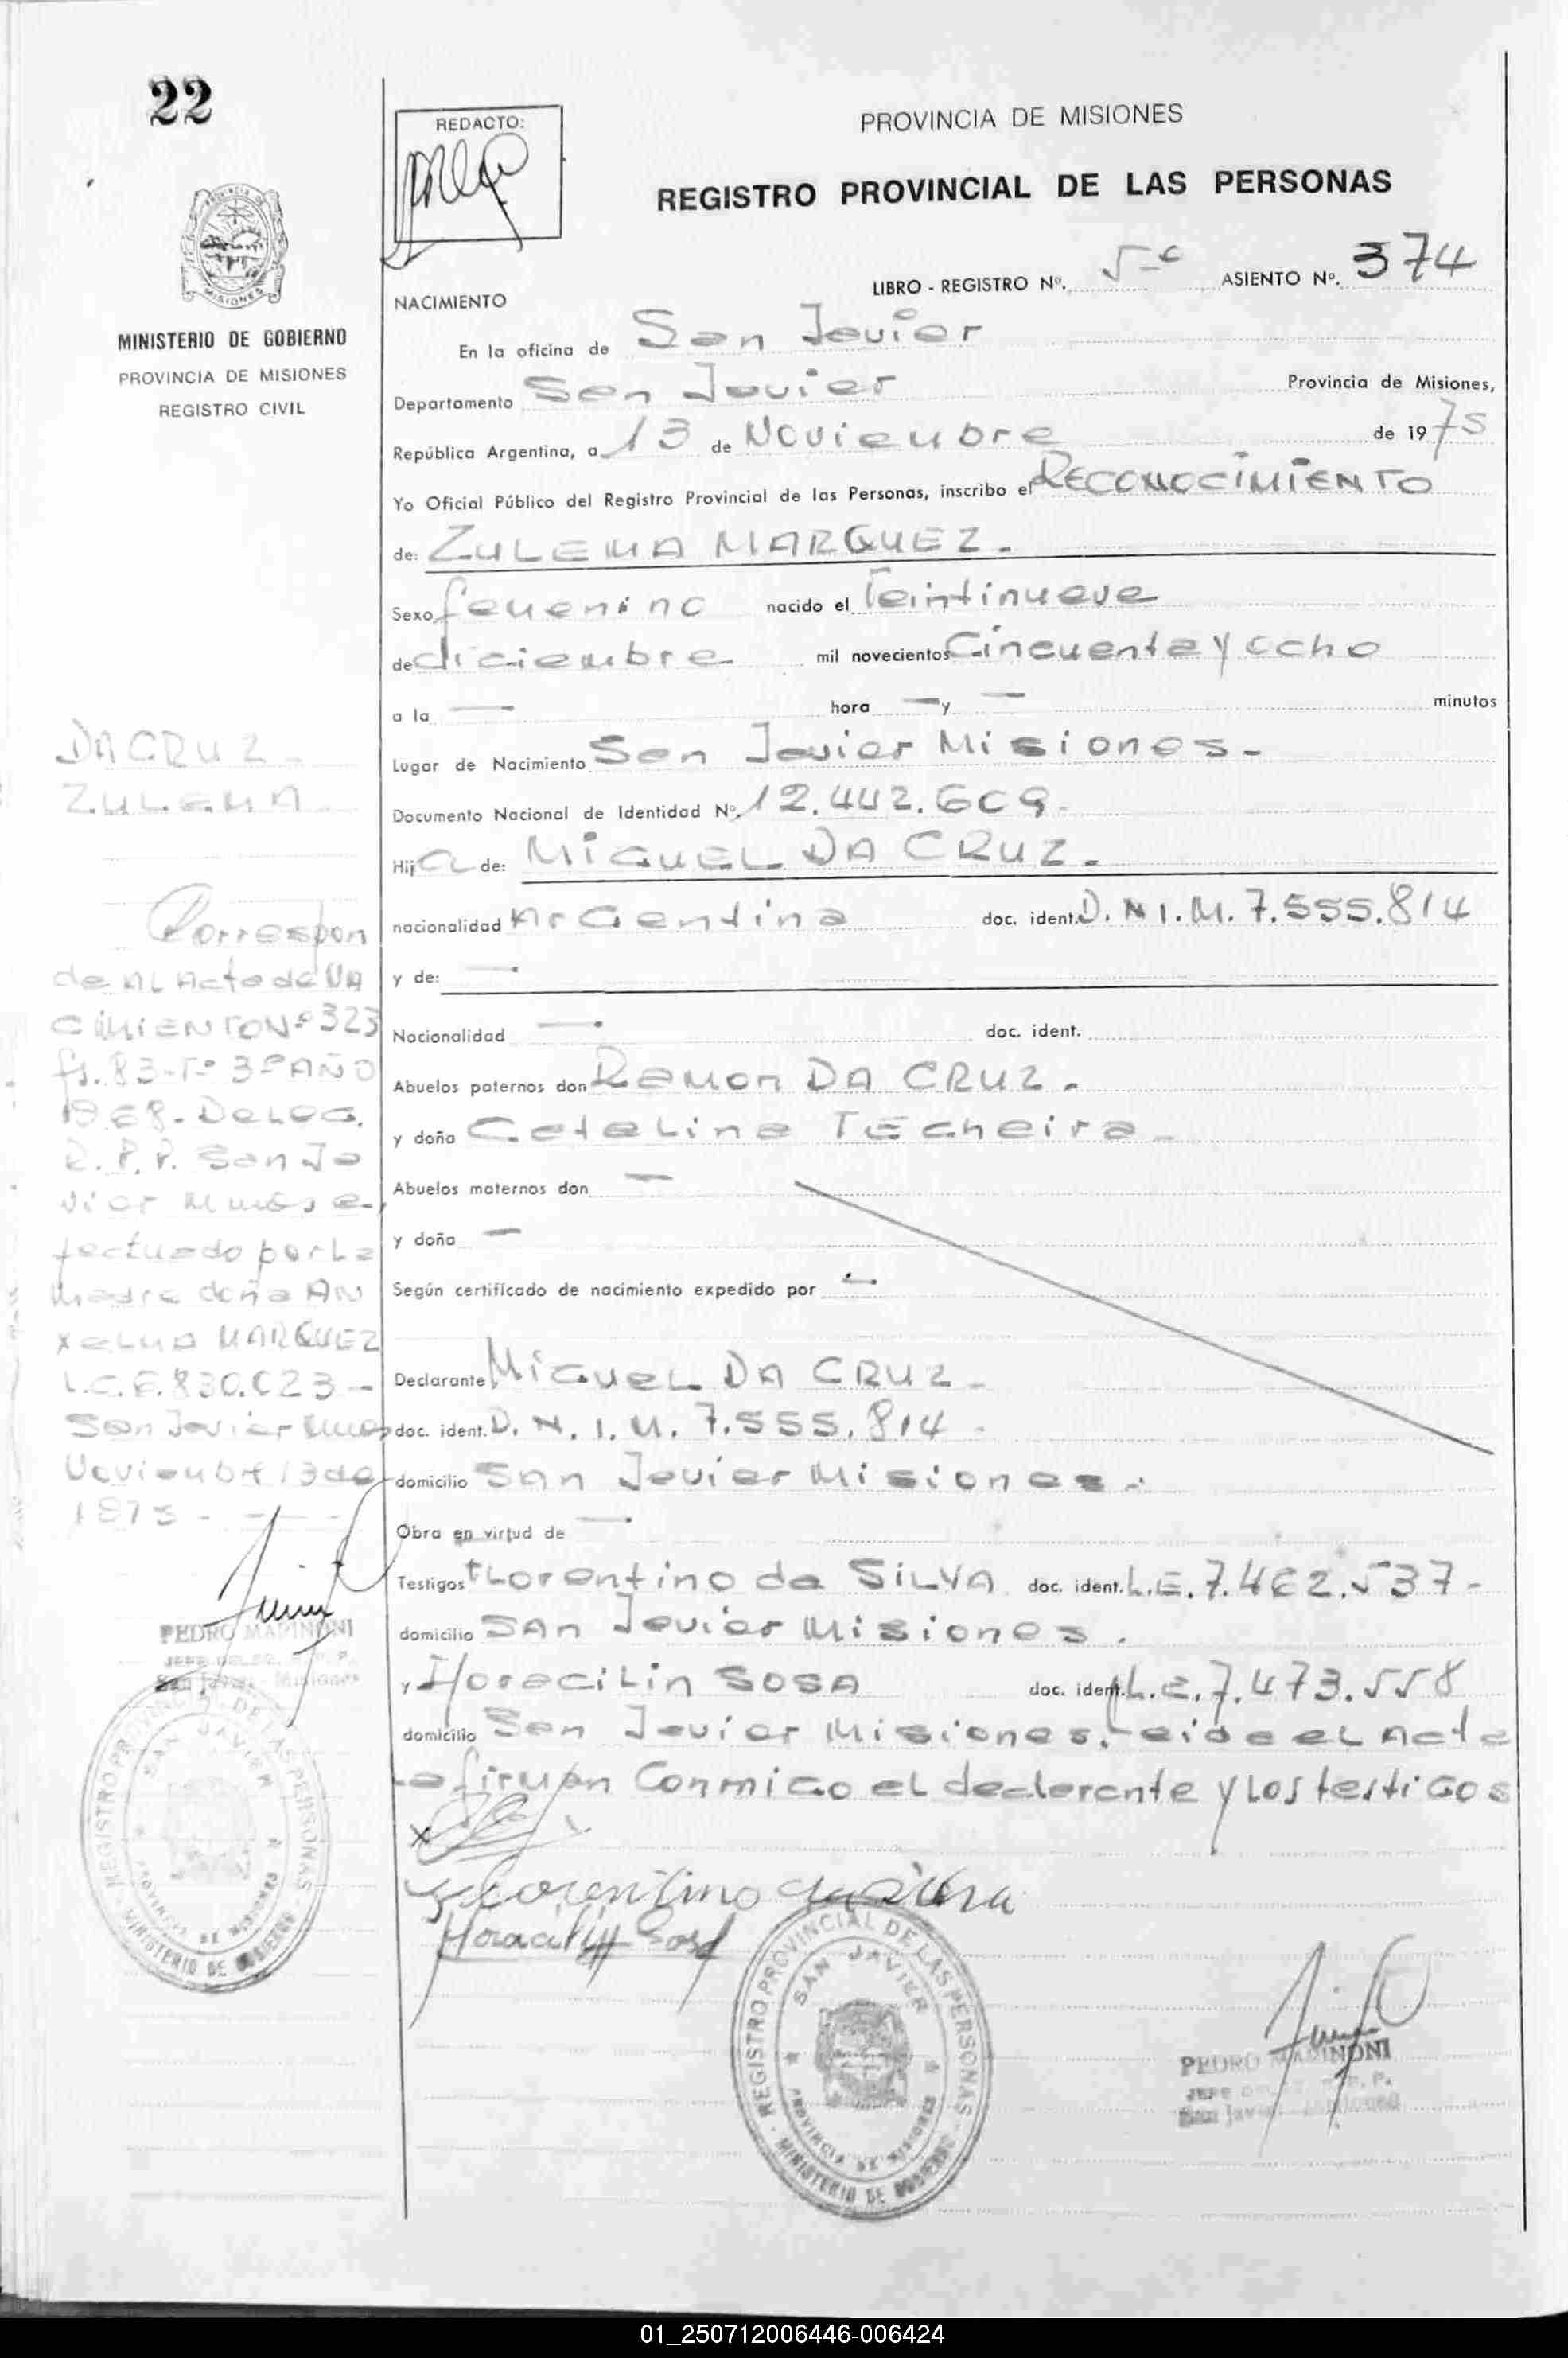 22
MINISTERIO DE GOBIERNO
PROVINCIA DE MISIONES
REGISTRO CIVIL
REDACTO:
PROVINCIA DE MISIONES
REGISTRO PROVINCIAL DE LAS PERSONAS
LIBRO - REGISTRO Nº. 5-º ASIENTO Nº. 374
NACIMIENTO
En la oficina de San Javier
Departamento San Javier Provincia de Misiones,
República Argentina, a 13 de Noviembre de 1975
Yo Oficial Público del Registro Provincial de las Personas, inscribo el RECONOCIMIENTO
de: ZULEMA MARQUEZ.
Sexo femenino nacido el Veintinueve
de diciembre mil novecientos Cincuenta y ocho
a la — hora — y — minutos
Lugar de Nacimiento San Javier Misiones-
Documento Nacional de Identidad Nº. 12.442.609-
Hija de: MIGUEL DA CRUZ.
nacionalidad Argentina doc. ident. D.N.I.M. 7.555.814
y de: —
Nacionalidad — doc. ident.
Abuelos paternos don Ramon DA CRUZ.
y doña Catalina TEcheira-
Abuelos maternos don —
y doña —
Según certificado de nacimiento expedido por —
Declarante MIGUEL DA CRUZ-
doc. ident. D.N.I.M. 7.555.814-
domicilio San Javier Misiones.
Obra en virtud de —
Testigos Florentino da SILVA doc. ident. L.E. 7.462.537-
domicilio San Javier Misiones.
y Horacilin SOSA doc. ident. L.E. 7.473.558
domicilio San Javier Misiones. Leida el Acta
la firman Conmigo el declarante y los testigos
Florentino da Silva
Horacilin Sosa
DA CRUZ-
ZULEMA
Correspon
de AL Acta de NA
CIMIENTO Nº 323
fs. 83-Tº 3º AÑO
DE LOC.
R.P.P. San Ja
vier
fectuado por La
Madre doña AN
MARQUEZ
L.C.6.830.023-
San Javier Mnes
Noviembre 13 de
1975-
PEDRO MARINONI
San Javier Misiones
REGISTRO PROVINCIAL DE LAS PERSONAS
SAN JAVIER
PROVINCIA DE MISIONES
MINISTERIO DE GOBIERNO
REGISTRO PROVINCIAL DE LAS PERSONAS
SAN JAVIER
PROVINCIA DE MISIONES
MINISTERIO DE GOBIERNO
PEDRO MARINONI
San Javier
01_250712006446-006424